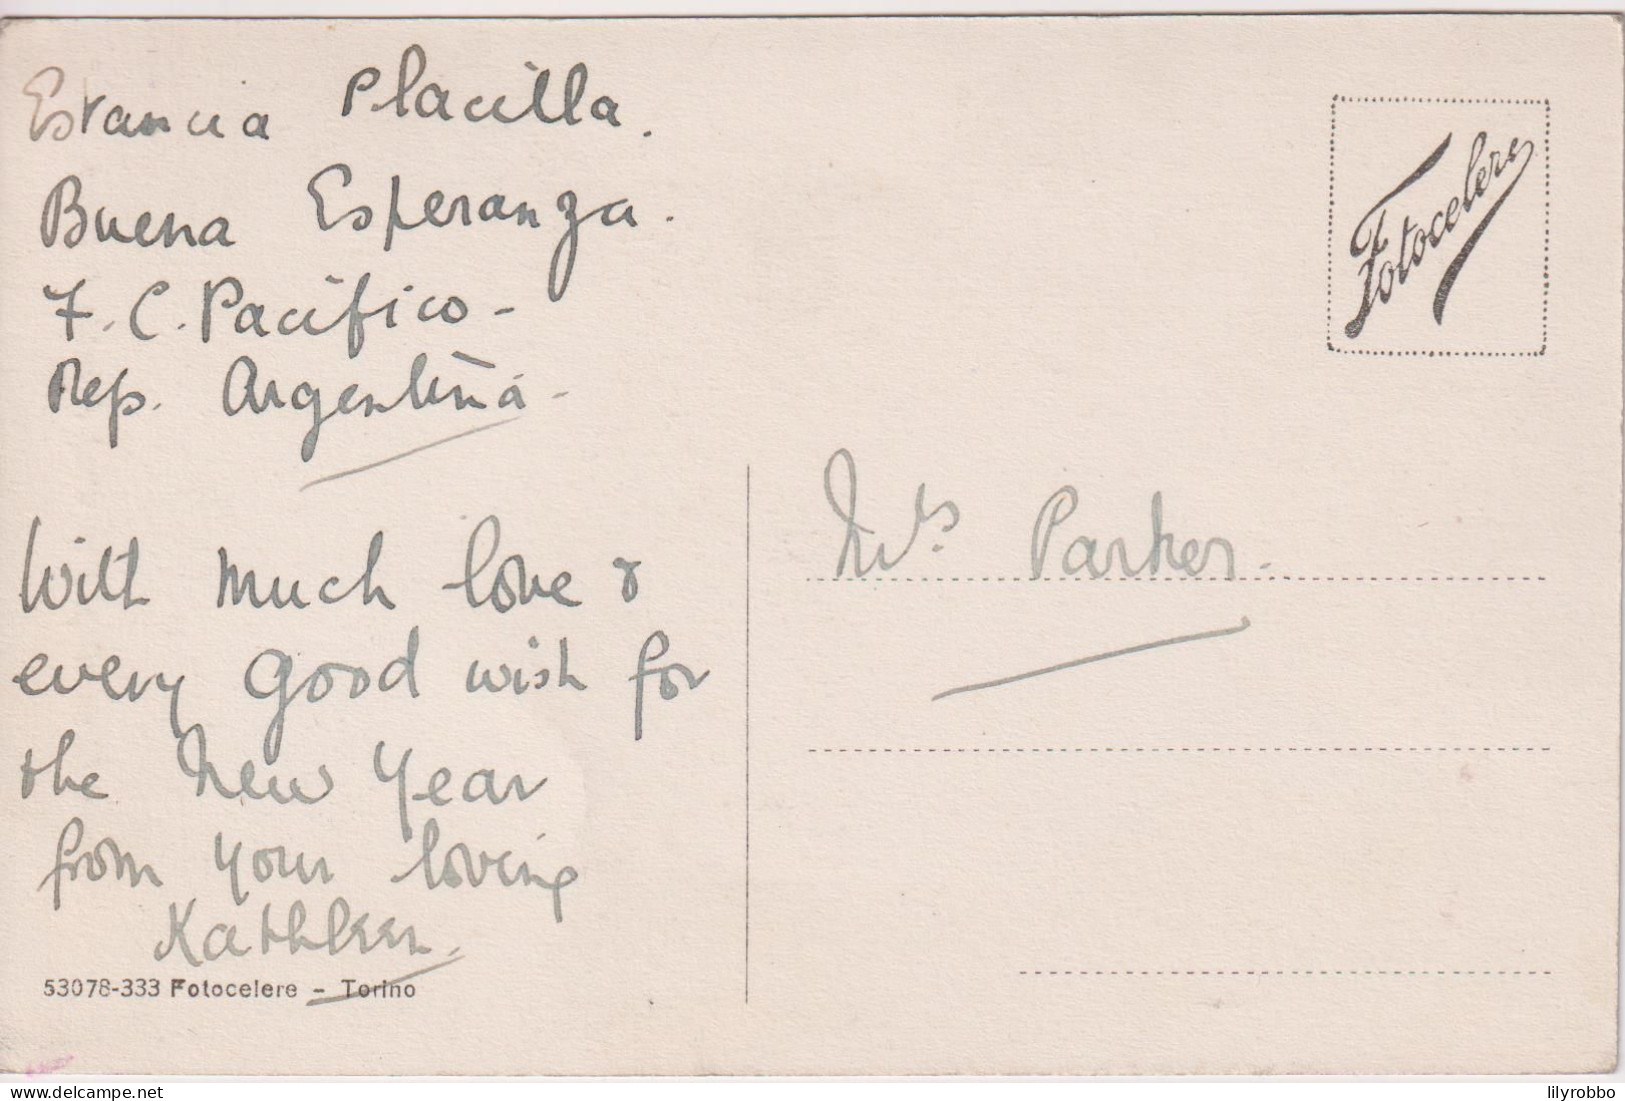 Estancia Placilla.
Buena Esperanza.
F. C. Pacifico -
Rep. Argentina -
With much love &
every good wish for
the New Year
from your loving
Kathleen.
53078-333 Fotocelere - Torino
Fotocelere
Mrs. Parker.
lilyrobbo